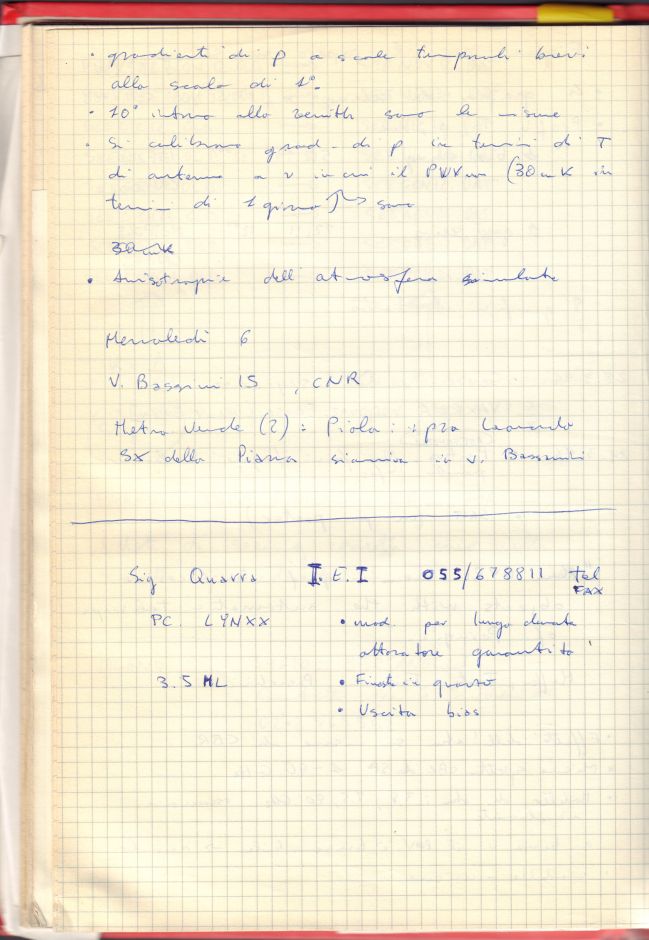 • gradienti di p a scale temporali brevi
alla scala di 1°.
• 10° intorno allo zenith sono le misure
• Si calibrano grad. di p in termini di T
di antenna a ν in cui il (30 mK in
termini di 1 giorno) → sono
30 mK
• Anisotropie dell'atmosfera simulate
Mercoledì 6
V. Bassini 15, CNR
Metro Verde (2): Piola: pza Leonardo
SX della Piazza si arriva in v. Bassini
Sig Quarra I.E.I 055/678811 tel
FAX
PC. LYNXX • mod. per lunga durata
otturatore garantito
3.5 ML • Finestra in quarzo
• Uscita bias